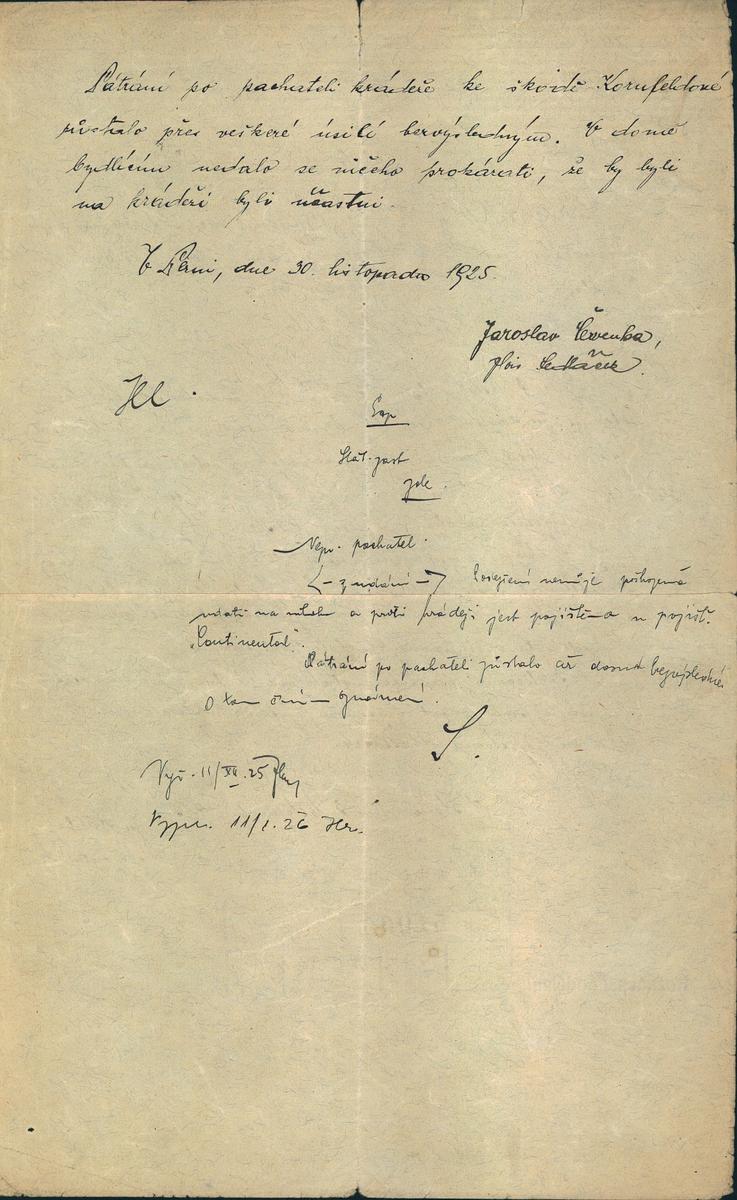 Pátrání po pachateli krádeže ke škodě Kornfeldové
zůstalo přes veškeré úsilí bezvýsledným. V domě
bydlícím nedalo se ničeho prokázati, že by byli
na krádeži byli účastni.
V Plzni, dne 30. listopadu 1925.
Jaroslav Červenka,
Alois Sedláček.
Hl.
Exp
Stát. zast
zde.
Nezn. pachatel.
z udání Podezření nemůže poškozená
míti na nikoho a proti krádeži jest pojištěna u pojišť.
"Continental".
Pátrání po pachateli zůstalo až dosud bezvýsledné.
O tom činí oznámení.
S.
Vyř. 11/XII.25
Vypr. 11/1.26